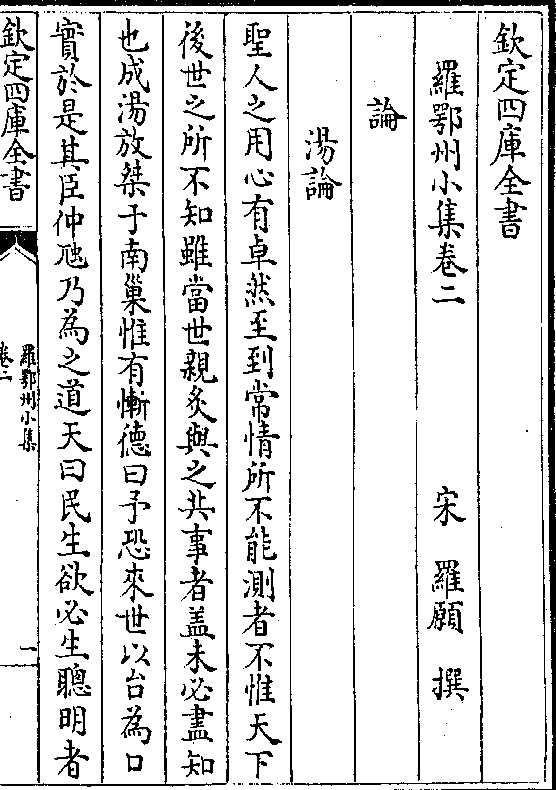 欽定四庫全書
羅鄂州小集卷二
宋 羅願 撰
論
湯論
聖人之用心有卓然至到常情所不能測者不惟天下
後世之所不知雖當世親炙與之共事者盖未必盡知
也成湯放桀于南巢惟有慚德曰予恐來世以台為口
實於是其臣仲虺乃為之道天曰民生欲必生聰明者
欽定四庫全書
羅鄂州小集
卷二
一